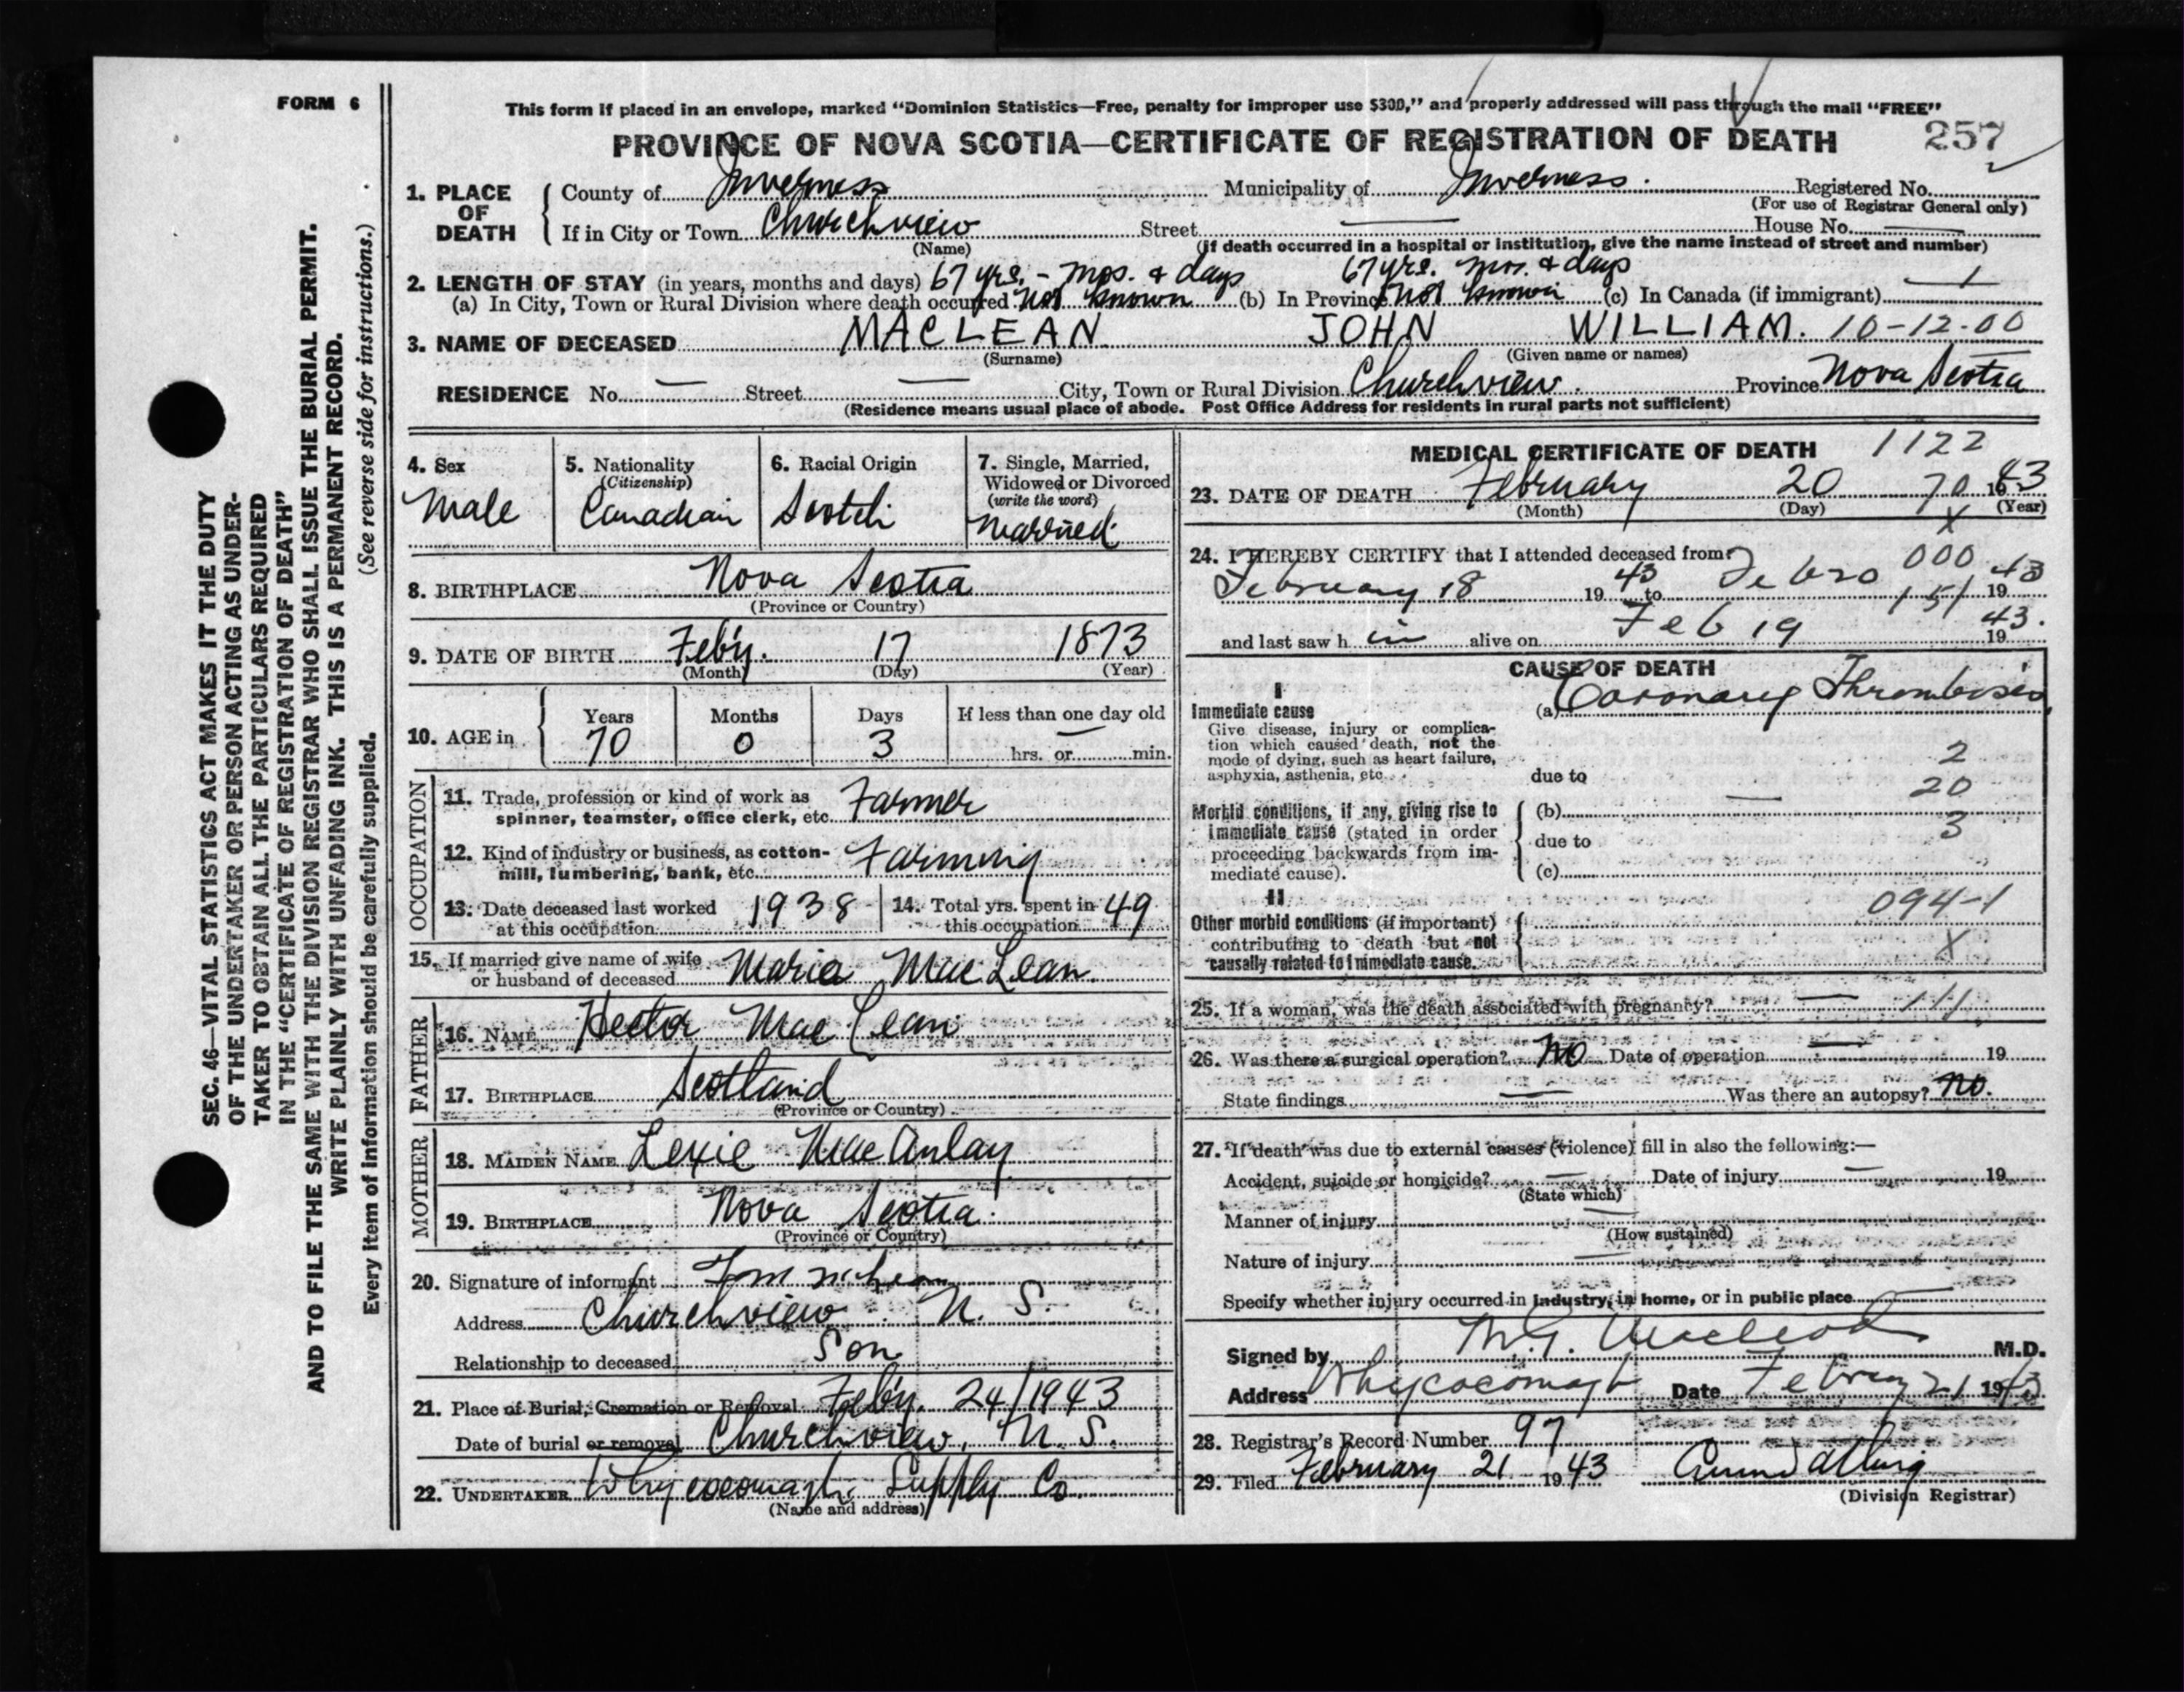 FORM 6
This form if placed in an envelope, marked "Dominion Statistics—Free, penalty for improper use $300," and properly addressed will pass through the mail "FREE"
PROVINCE OF NOVA SCOTIA—CERTIFICATE OF REGISTRATION OF DEATH 257
1. PLACE OF DEATH County of Inverness Municipality of Inverness. Registered No.
(For use of Registrar General only)
If in City or Town Churchview Street — House No. —
(Name) (If death occurred in a hospital or institution, give the name instead of street and number)
67 yrs. - mos. & days 67 yrs. mos. & days
2. LENGTH OF STAY (in years, months and days)
(a) In City, Town or Rural Division where death occurred Not known (b) In Province Not known (c) In Canada (if immigrant) —
3. NAME OF DECEASED MACLEAN JOHN WILLIAM. 10-12-00
(Surname) (Given name or names)
RESIDENCE No. — Street — City, Town or Rural Division Churchview. Province Nova Scotia
(Residence means usual place of abode. Post Office Address for residents in rural parts not sufficient)
4. Sex Male
5. Nationality (Citizenship) Canadian
6. Racial Origin Scotch
7. Single, Married, Widowed or Divorced (write the word) Married.
8. BIRTHPLACE Nova Scotia
(Province or Country)
9. DATE OF BIRTH Feb'y. 17 1873
(Month) (Day) (Year)
10. AGE in Years 70 Months 0 Days 3 If less than one day old —
hrs. or min.
OCCUPATION
11. Trade, profession or kind of work as spinner, teamster, office clerk, etc. Farmer
12. Kind of industry or business, as cotton-mill, lumbering, bank, etc. Farming
13. Date deceased last worked at this occupation 1938
14. Total yrs. spent in this occupation 49
15. If married give name of wife or husband of deceased Maria MacLean.
FATHER
16. NAME Hector MacLean
17. BIRTHPLACE Scotland
(Province or Country)
MOTHER
18. MAIDEN NAME Lexie MacAulay
19. BIRTHPLACE Nova Scotia.
(Province or Country)
20. Signature of informant
Address Churchview N. S.
Relationship to deceased Son
21. Place of Burial, Cremation or Removal Feb'y. 24/1943
Date of burial or removal Churchview, N. S.
22. UNDERTAKER Whycocomagh Supply Co.
(Name and address)
MEDICAL CERTIFICATE OF DEATH 1122
23. DATE OF DEATH February 20 70 1943
(Month) (Day) (Year)
X
24. I HEREBY CERTIFY that I attended deceased from: 000
February 18 1943 to Feb 20 151 1943
and last saw h im alive on Feb 19 1943.
CAUSE OF DEATH
I
Immediate cause (a) Coronary Thrombosis
Give disease, injury or complication which caused death, not the mode of dying, such as heart failure, asphyxia, asthenia, etc.
2
due to
20
Morbid conditions, if any, giving rise to immediate cause (stated in order proceeding backwards from immediate cause).
(b) —
due to 3
(c)
II
094-1
Other morbid conditions (if important) contributing to death but not causally related to immediate cause.
X
25. If a woman, was the death associated with pregnancy? — 111
26. Was there a surgical operation? No Date of operation — 19
State findings — Was there an autopsy? No.
27. If death was due to external causes (violence) fill in also the following:—
Accident, suicide or homicide? — Date of injury — 19
(State which)
Manner of injury —
(How sustained)
Nature of injury —
Specify whether injury occurred in industry, in home, or in public place
Signed by MacLeod M.D.
Address Whycocomagh Date February 21 1943
28. Registrar's Record Number 97
29. Filed February 21 1943
(Division Registrar)
SEC. 46—VITAL STATISTICS ACT MAKES IT THE DUTY
OF THE UNDERTAKER OR PERSON ACTING AS UNDER-
TAKER TO OBTAIN ALL THE PARTICULARS REQUIRED
IN THE "CERTIFICATE OF REGISTRATION OF DEATH"
AND TO FILE THE SAME WITH THE DIVISION REGISTRAR WHO SHALL ISSUE THE BURIAL PERMIT.
WRITE PLAINLY WITH UNFADING INK. THIS IS A PERMANENT RECORD.
Every item of information should be carefully supplied. (See reverse side for instructions.)